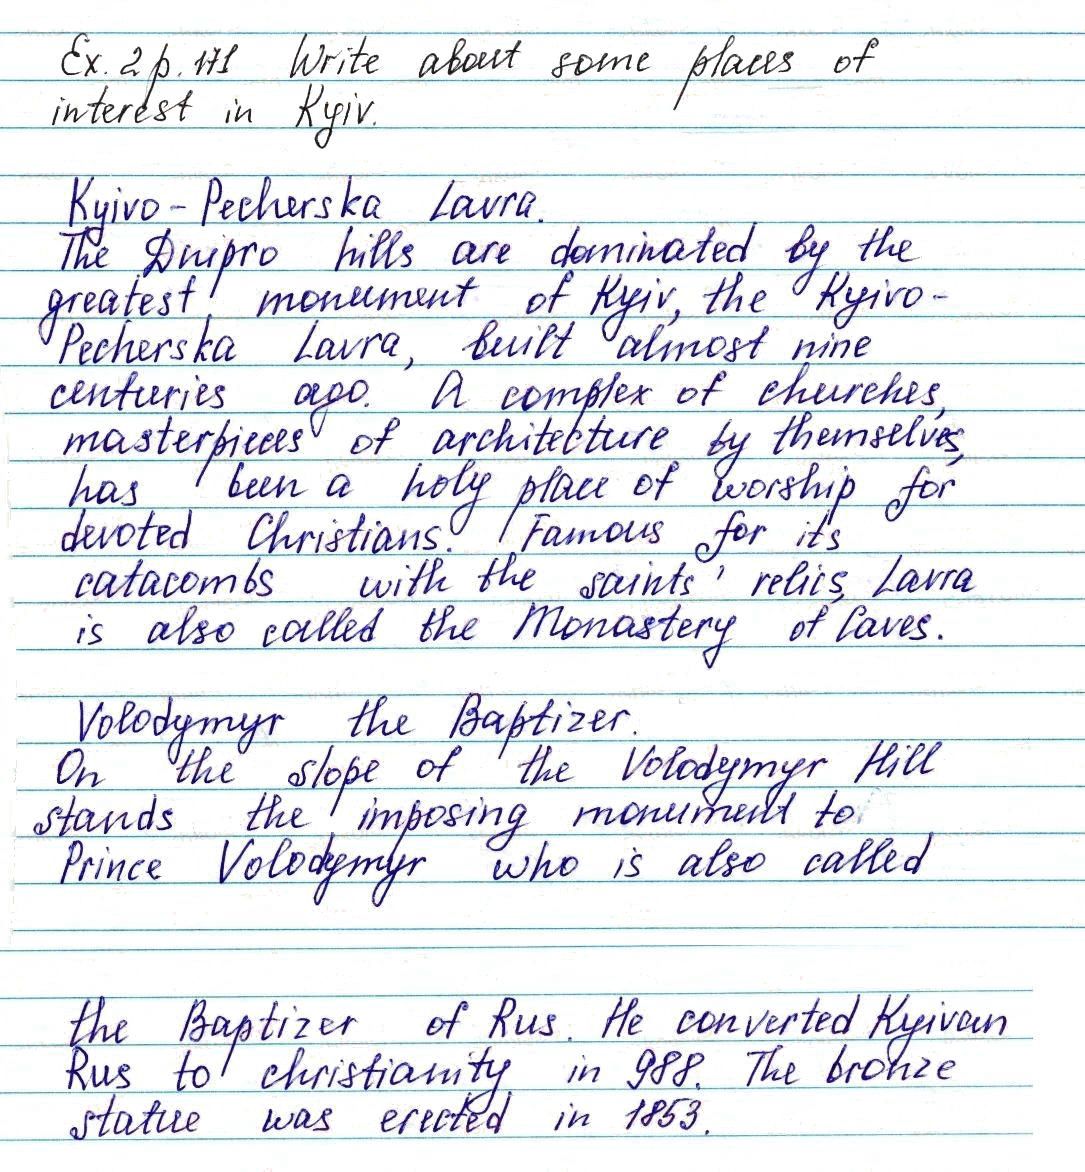 Ex. 2 p. 171 Write about some places of
interest in Kyiv.
Kyivo-Pecherska Lavra.
The Dnipro hills are dominated by the
greatest monument of Kyiv, the Kyivo-
Pecherska Lavra, built almost nine
centuries ago. A complex of churches,
masterpieces of architecture by themselves,
has been a holy place of worship for
devoted Christians. Famous for its
catacombs with the saints' relics, Lavra
is also called the Monastery of Caves.
Volodymyr the Baptizer.
On the slope of the Volodymyr Hill
stands the imposing monument to
Prince Volodymyr who is also called
the Baptizer of Rus. He converted Kyivan
Rus to christianity in 988. The bronze
statue was erected in 1853.